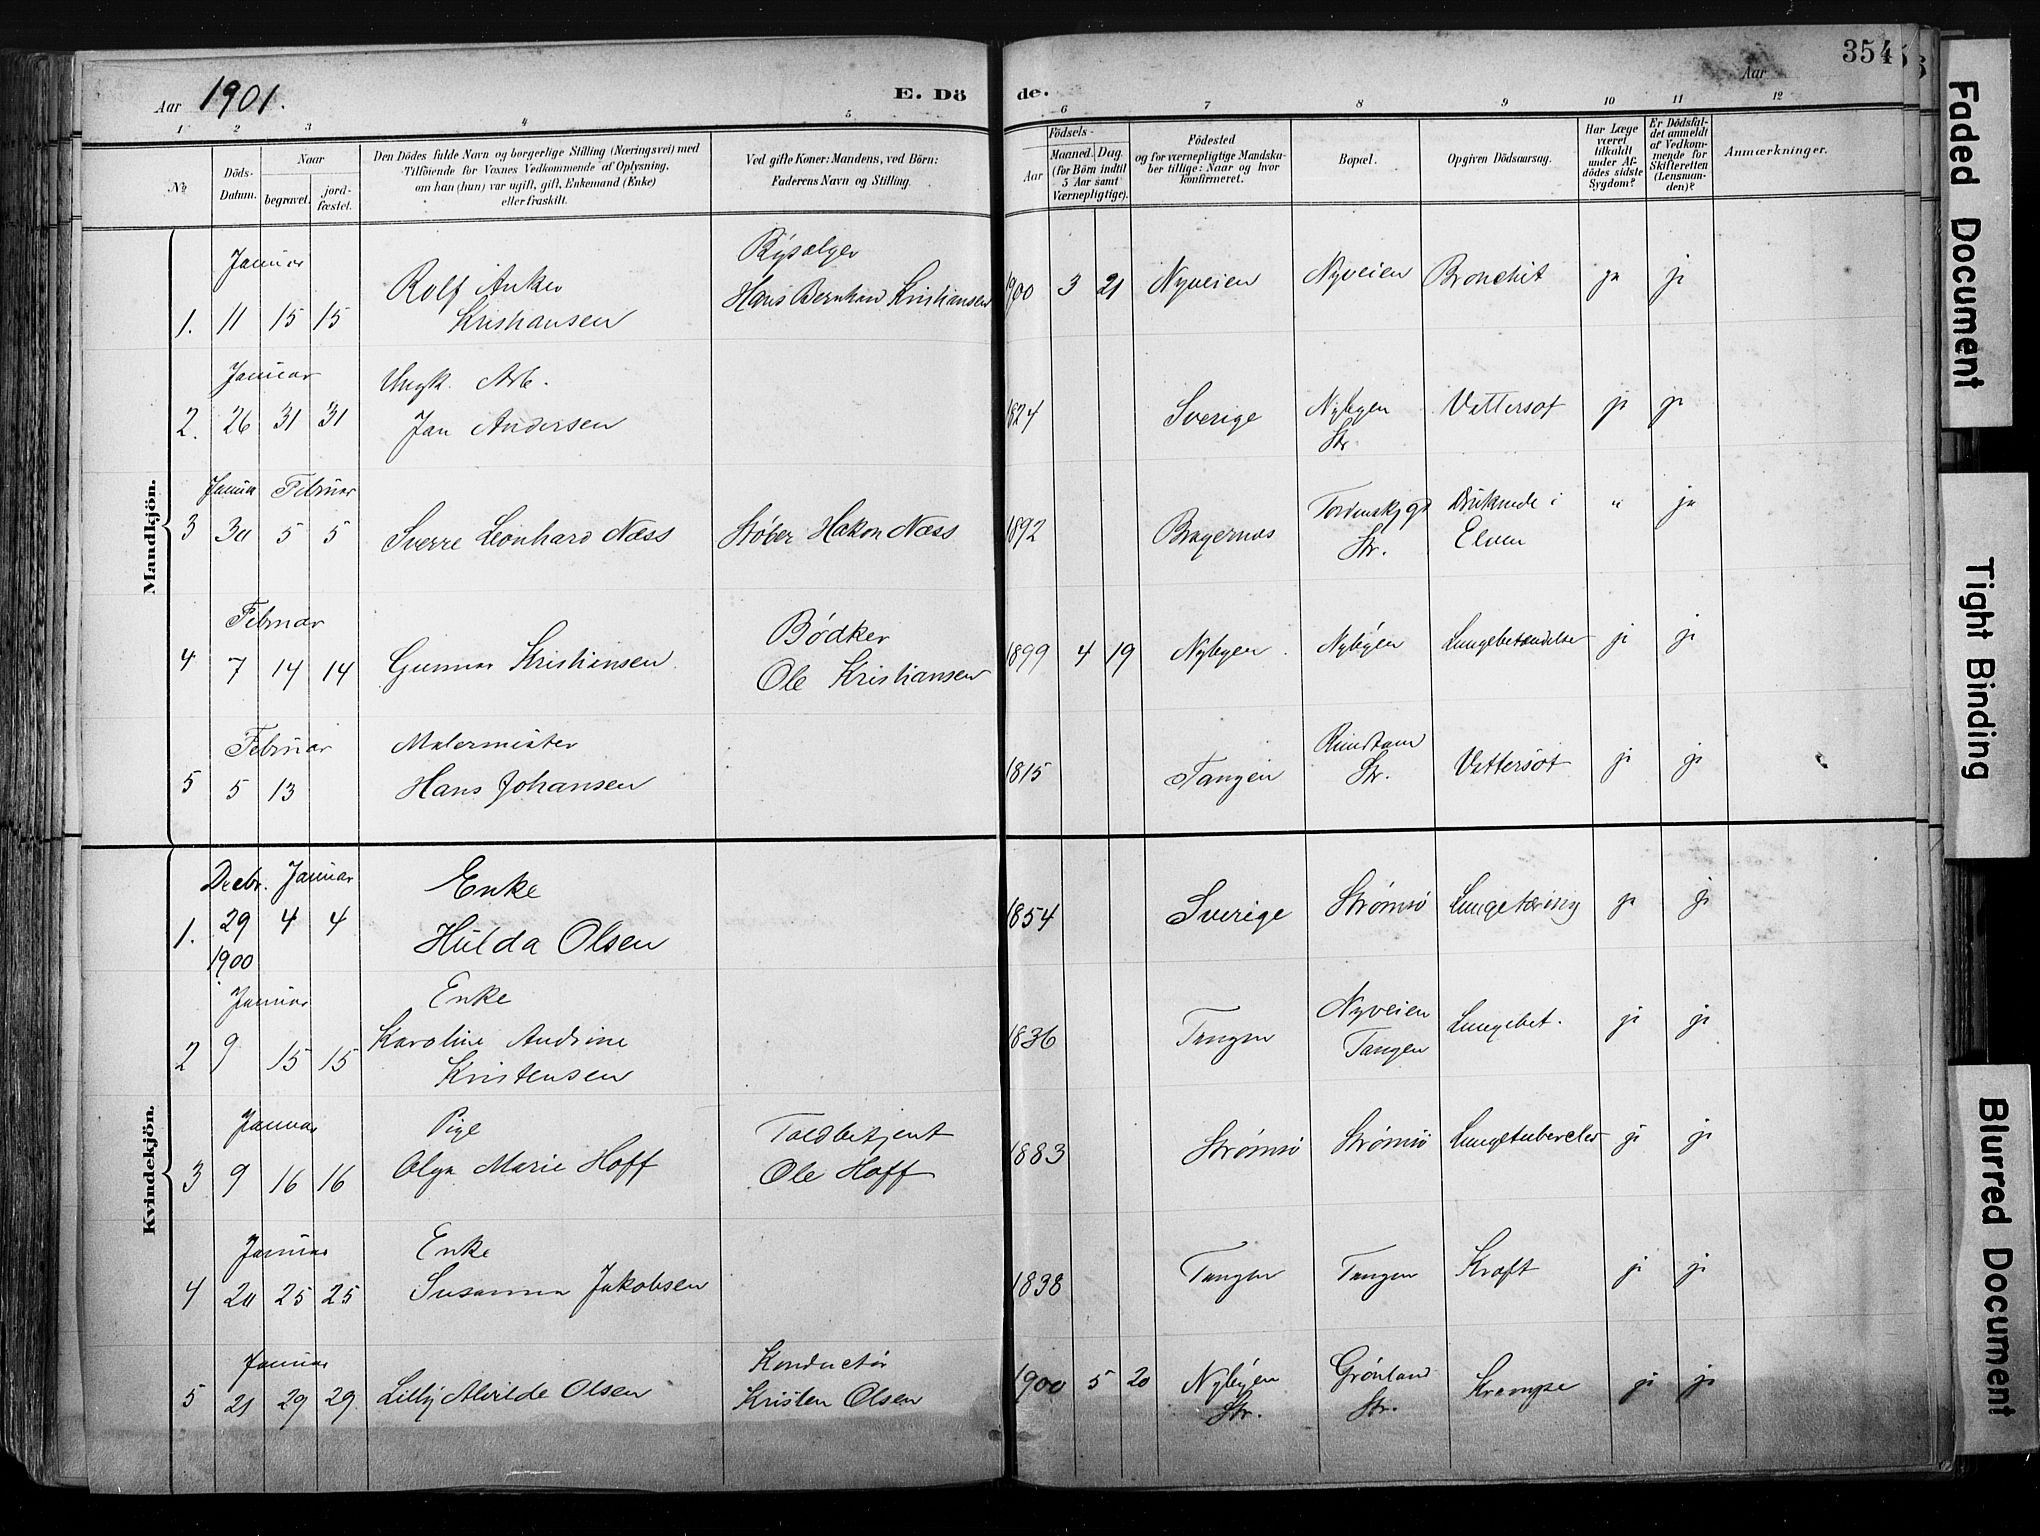 354
Aar 1901.
E. Döde.
Aar
1 2 3 4 5 6 7 8 9 10 11 12
№
Döds-Datum.
Naar
begravet.
jord-fæstet.
Den Dödes fulde Navn og borgerlige Stilling (Næringsvei) med
Tilföiende for Voxnes Vedkommende af Oplysning,
om han (hun) var ugift, gift, Enkemand (Enke)
eller fraskilt.
Ved gifte Koner: Mandens, ved Börn:
Faderens Navn og Stilling.
Födsels-
Aar
Maaned. Dag.
(for Börn indtil
5 Aar samt
Værnepligtige).
Födested
og for værnepligtige Mandska-
ber tillige: Naar og hvor
konfirmeret.
Bopæl.
Opgiven Dödsaarsag.
Har Læge
været
tilkaldt
under Af-
dödes sidste
Sygdom?
Er Dödsfal-
det anmeldt
af Vedkom-
mende for
Skifteretten
(Lensman-
den)?
Anmærkninger.
Mandkjön.
Januar
1. 11 15 15 Rolf Anker Kristiansen
Hans Bernhard Kristiansen
1900 3 21 Nyveien Nyveien Bronchit ja ja
Januar
2. 26 31 31 Ungk. Arb.
Jan Andersen
1824 Sverige Nybyen Str. Vattersot ja ja
Januar Februar
3 30 5 5 Sverre Leonhard Næss Støber Hakon Næss
1892 Bragernæs Tordenskj gd Str. Druknede i Elven " ja
Februar
4 7 14 14 Gunnar Kristiansen
Bødker
Ole Kristiansen
1899 4 19 Nybyen Nybyen Lungebetændelse ja ja
Februar
5 5 13 Malermester
Hans Johansen
1815 Tangen Str. Vattersot ja ja
Kvindekjön.
Decbr. Januar
1. 29 4 4
1900
Enke
Hulda Olsen
1854 Sverige Strømsø Lungetæring ja ja
Januar
2 9 15 15 Enke
Karoline Andrine
Kristensen
1836 Tangen Nyveien Tangen Lungebet. ja ja
Januar
3 9 16 16 Pige
Olga Marie Hoff
Toldbetjent
Ole Hoff
1883 Strømsø Strømsø Lungetubercler ja ja
Januar
4 20 25 25 Enke
Susanna Jakobsen
1838 Tangen Tangen Kræft ja ja
Januar
5 21 29 29 Lilly Alvilde Olsen
Konductør
Kristen Olsen
1900 5 20 Nybyen Str. Grønland Str. Krampe ja ja
Faded Document
Tight Binding
Blurred Document